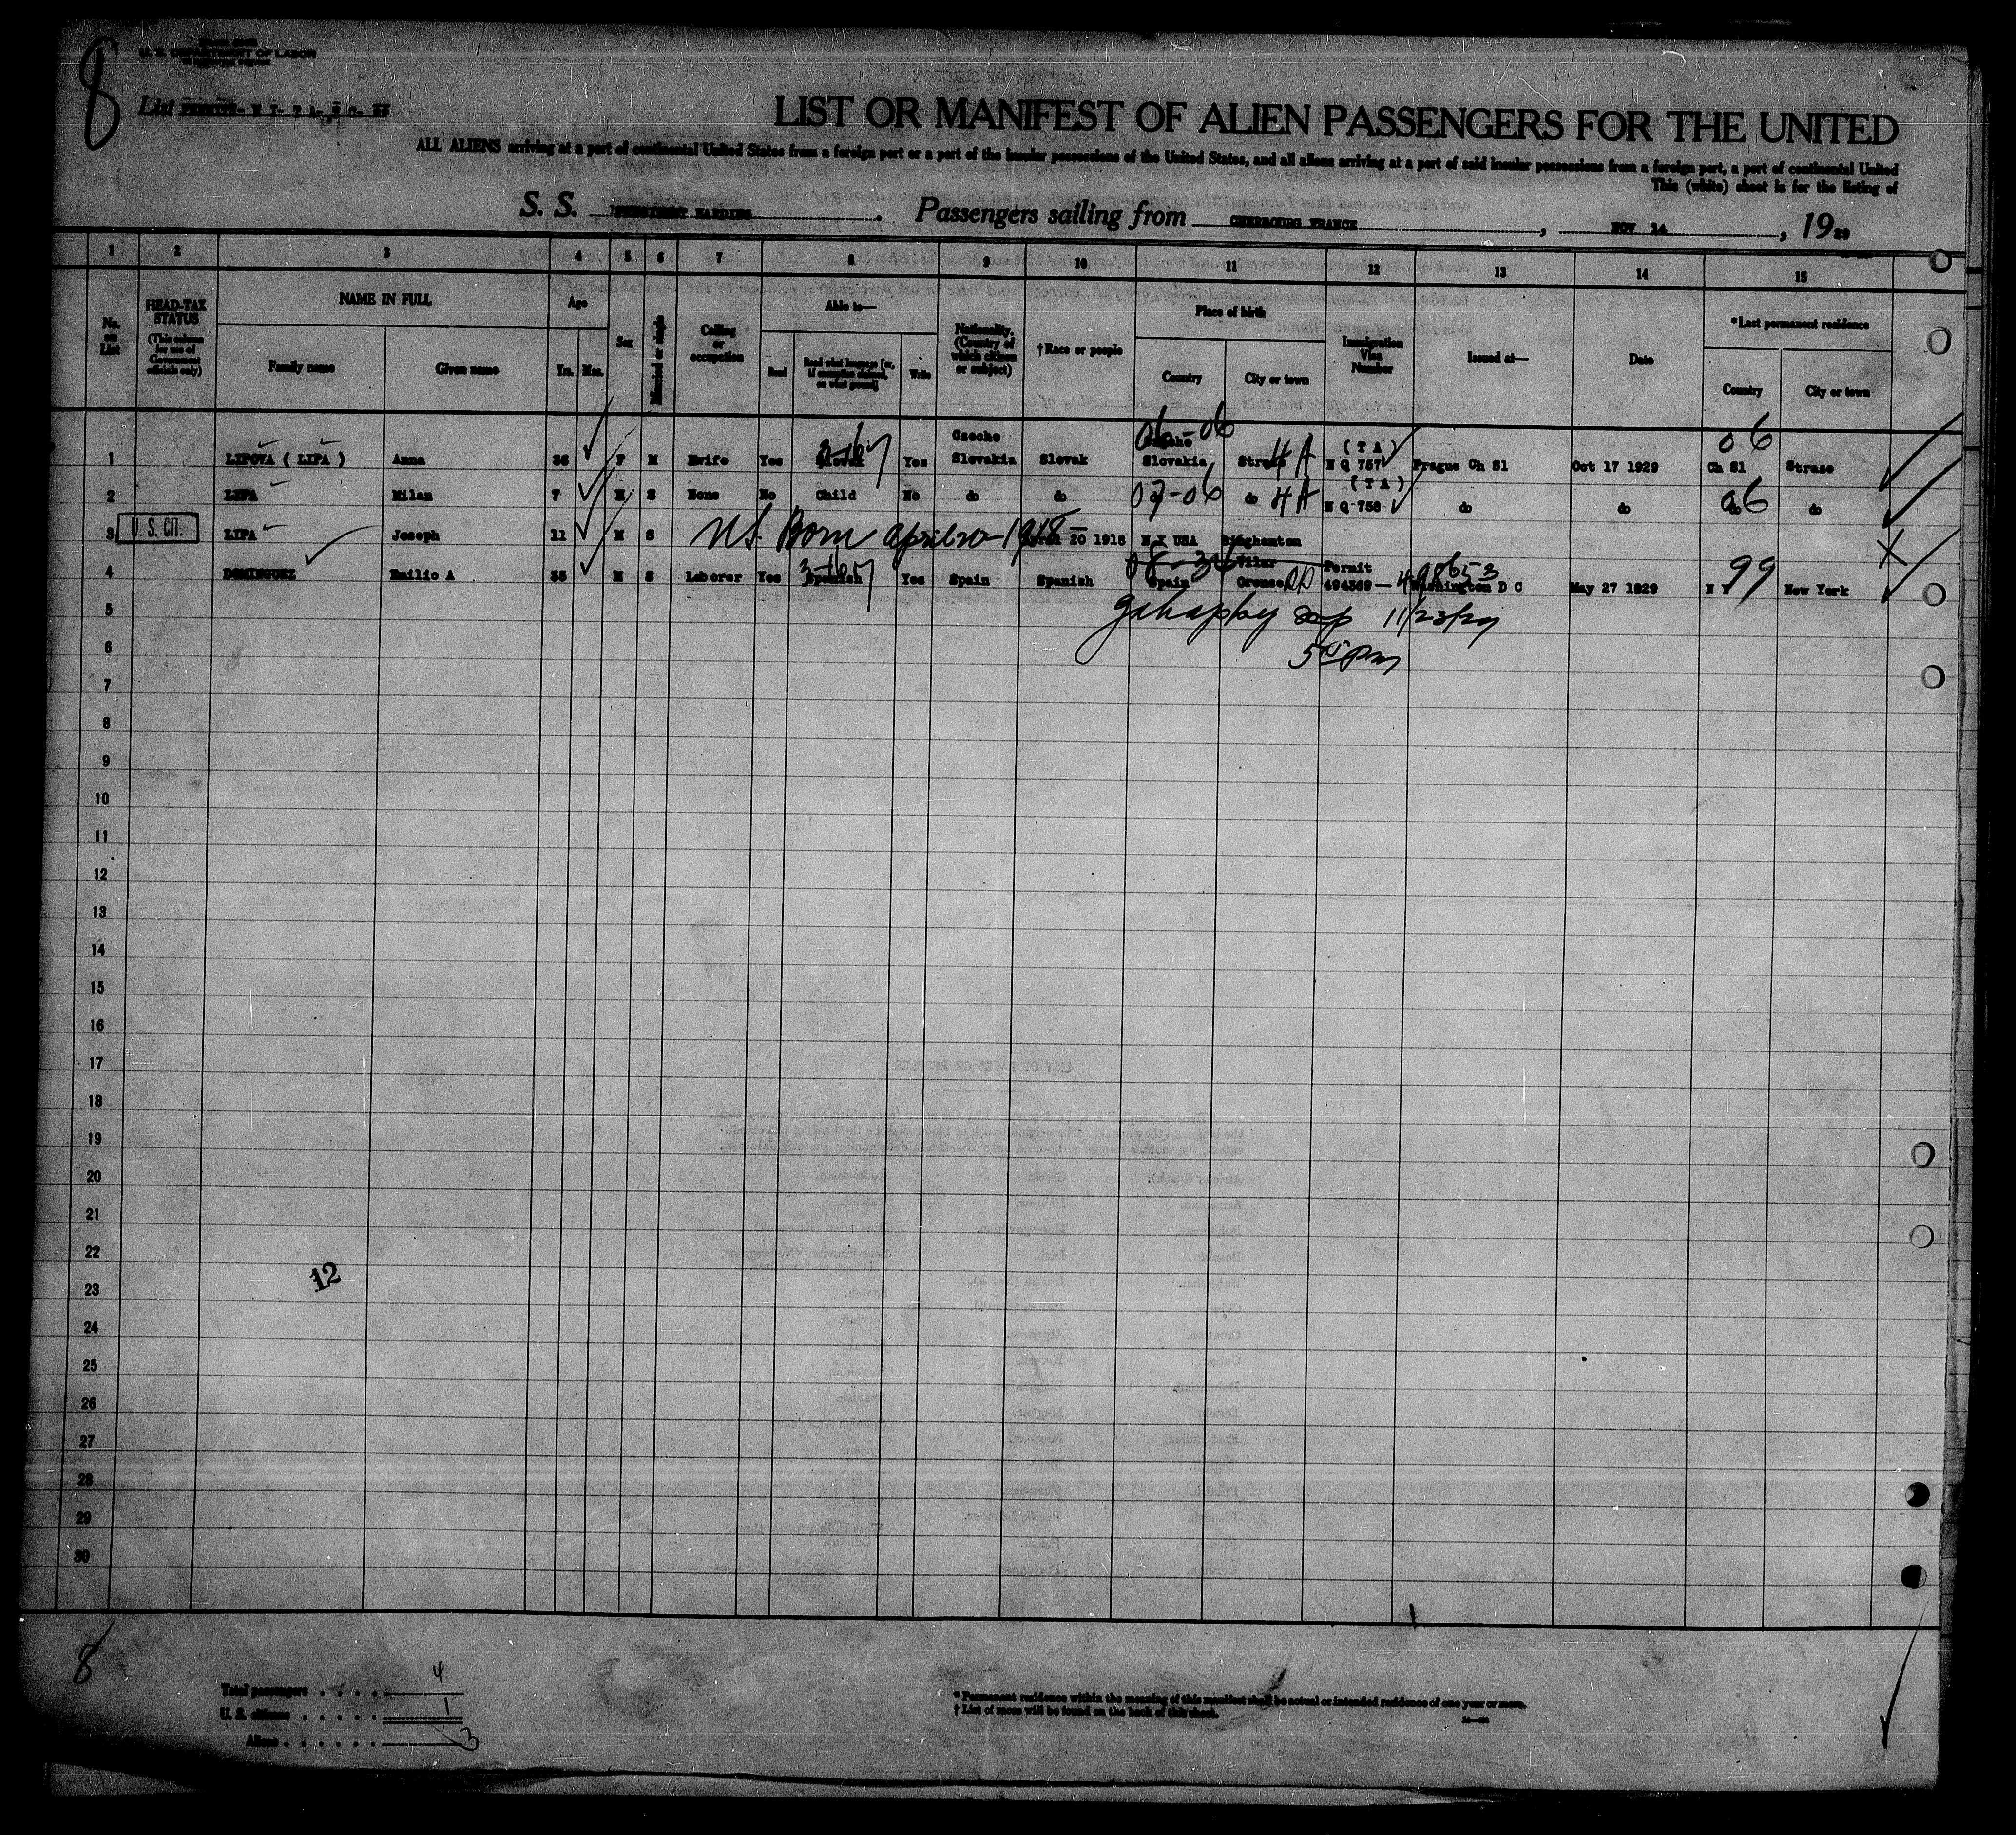 8
U. S. DEPARTMENT OF LABOR
List
LIST OR MANIFEST OF ALIEN PASSENGERS FOR THE UNITED
ALL ALIENS arriving at a port of continental United States from a foreign port or a port of the insular possessions of the United States, and all aliens arriving at a port of said insular possessions from a foreign port, a port of continental United
This (white) sheet is for the listing of
S. S. PRESIDENT HARDING. Passengers sailing from CHERBOURG FRANCE, NOV 14, 1929
1 2 3 4 5 6 7 8 9 10 11 12 13 14 15
No. on List
HEAD-TAX STATUS (This column for use of Government officials only)
NAME IN FULL
Family name Given name
Age
Yrs. Mos.
Sex
Married or single
Calling or occupation
Able to—
Read Read what language [or, if exemption claimed, on what ground] Write
Nationality. (Country of which citizen or subject)
†Race or people
Place of birth
Country City or town
Immigration Visa Number
Issued at—
Date
*Last permanent residence
Country City or town
1 LIPOVA ( LIPA ) Anna 36 F M Hwife Yes Slovak Yes Czecho Slovakia Slovak Slovakia 4A (TA) N Q 757 Prague Ch Sl Oct 17 1929 Ch Sl Strase
06-06
06
2 LIPA Milan 7 M S None No Child No do do 07-06 do 4A (TA) N Q 758 do do 06 do
3 U. S. CIT. LIPA Joseph 11 M S US Born April 20-1918 20 1918 N Y USA Binghamton
4 DOMINGUEZ Emilio A 35 M S Laborer Yes Spanish Yes Spain Spanish Spain Orense Permit 494369 Washington D C May 27 1929 N Y 99 New York
11/23/29
5
6
7
8
9
10
11
12
13
14
15
16
17
18
19
20
21
22
12
23
24
25
26
27
28
29
30
8
Total passengers . . . . 4
U. S. citizens . . . . . 1
Aliens . . . . . . 3
* Permanent residence within the meaning of this manifest shall be actual or intended residence of one year or more.
† List of races will be found on the back of this sheet.